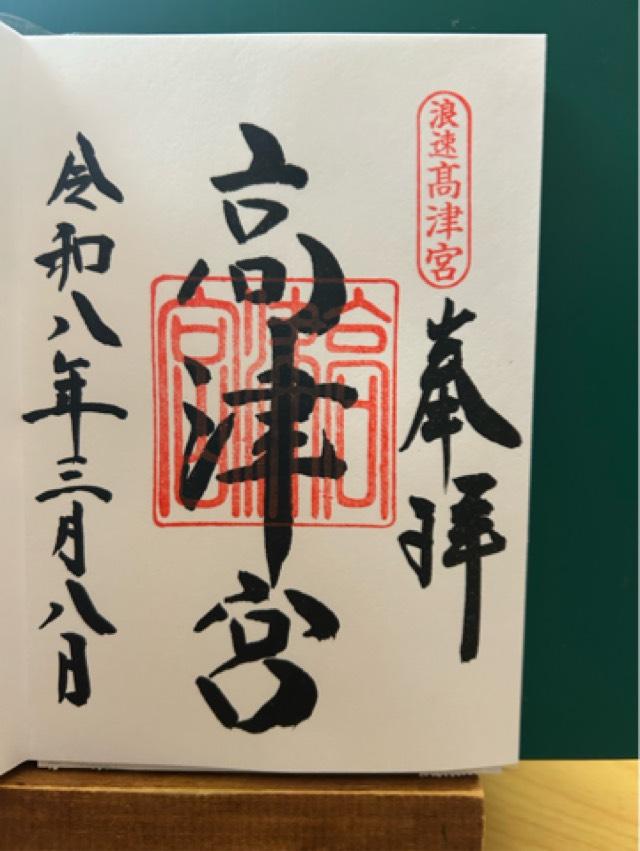 浪速髙津宮
奉拝
高津宮
高津宮
令和八年三月八日